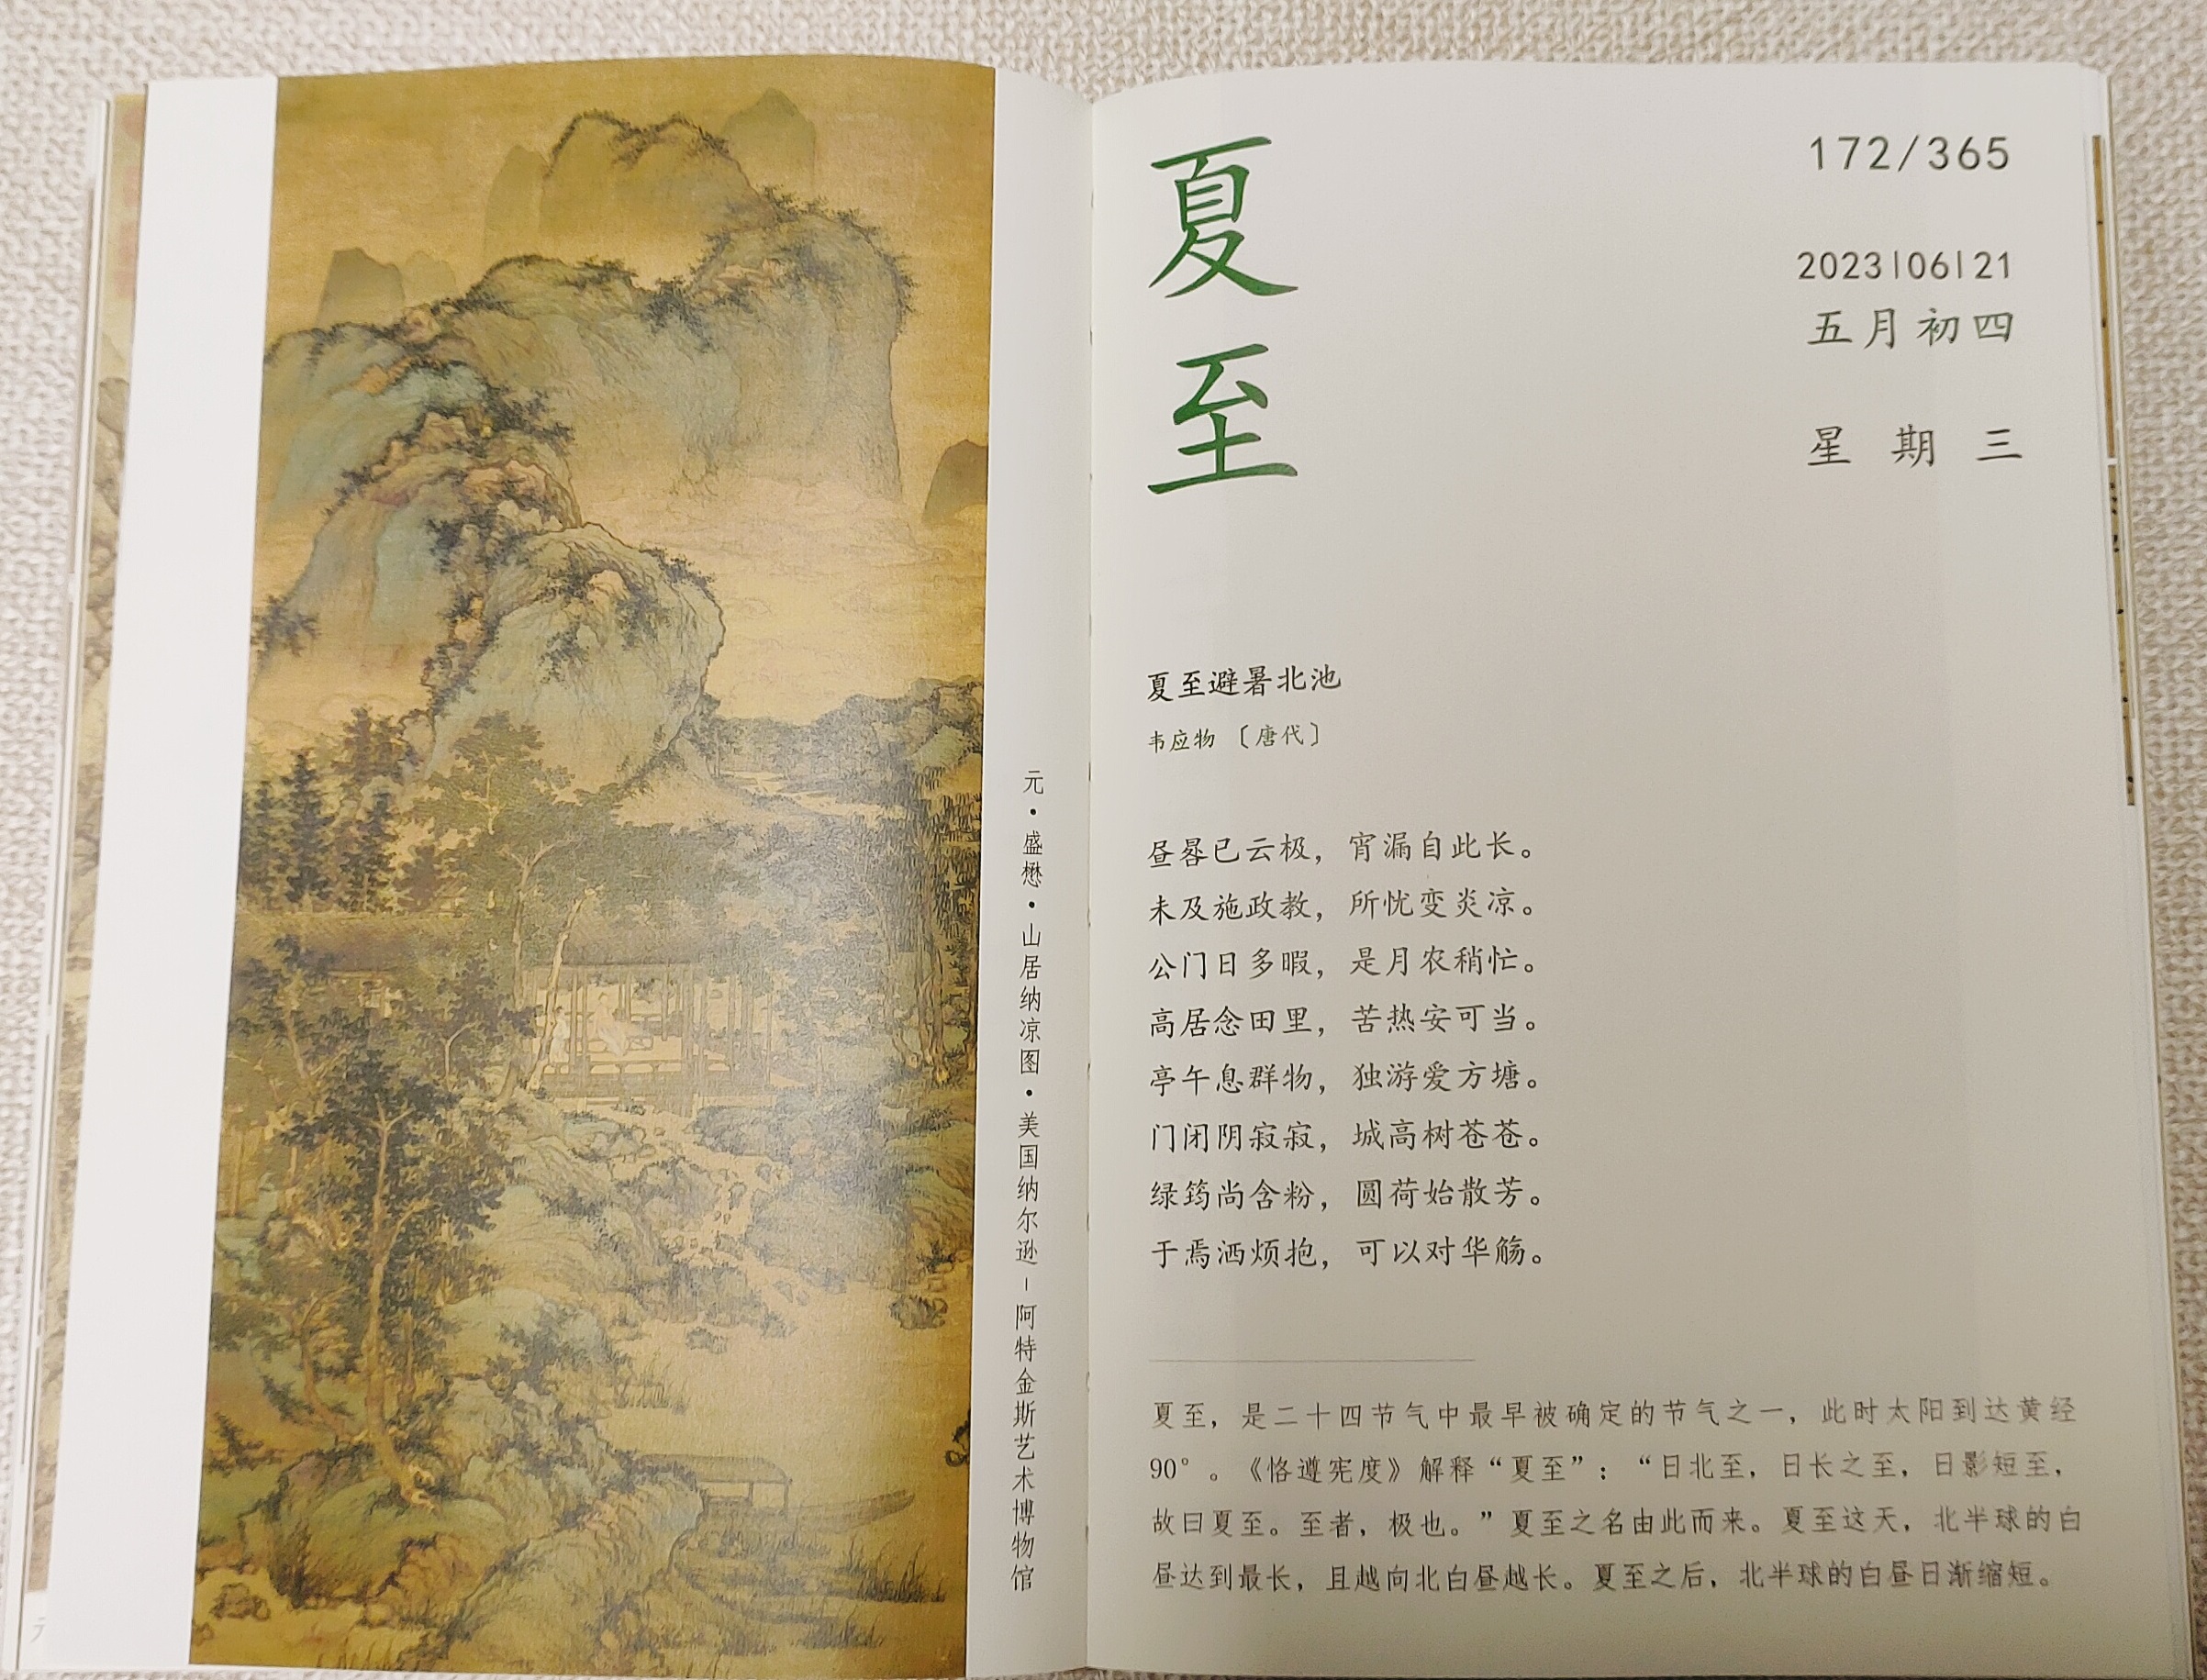 元·盛懋·山居纳凉图·美国纳尔逊-阿特金斯艺术博物馆
夏至
172/365
2023|06|21
五月初四
星期三
夏至避暑北池
韦应物〔唐代〕
昼晷已云极，宵漏自此长。
未及施政教，所忧变炎凉。
公门日多暇，是月农稍忙。
高居念田里，苦热安可当。
亭午息群物，独游爱方塘。
门闭阴寂寂，城高树苍苍。
绿筠尚含粉，圆荷始散芳。
于焉洒烦抱，可以对华觞。
夏至，是二十四节气中最早被确定的节气之一，此时太阳到达黄经
90°。《恪遵宪度》解释“夏至”：“日北至，日长之至，日影短至，
故曰夏至。至者，极也。”夏至之名由此而来。夏至这天，北半球的白
昼达到最长，且越向北白昼越长。夏至之后，北半球的白昼日渐缩短。